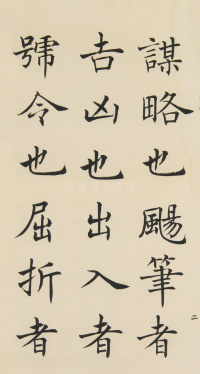 謀略也颺筆者
吉凶也出入者
號令也屈折者
二